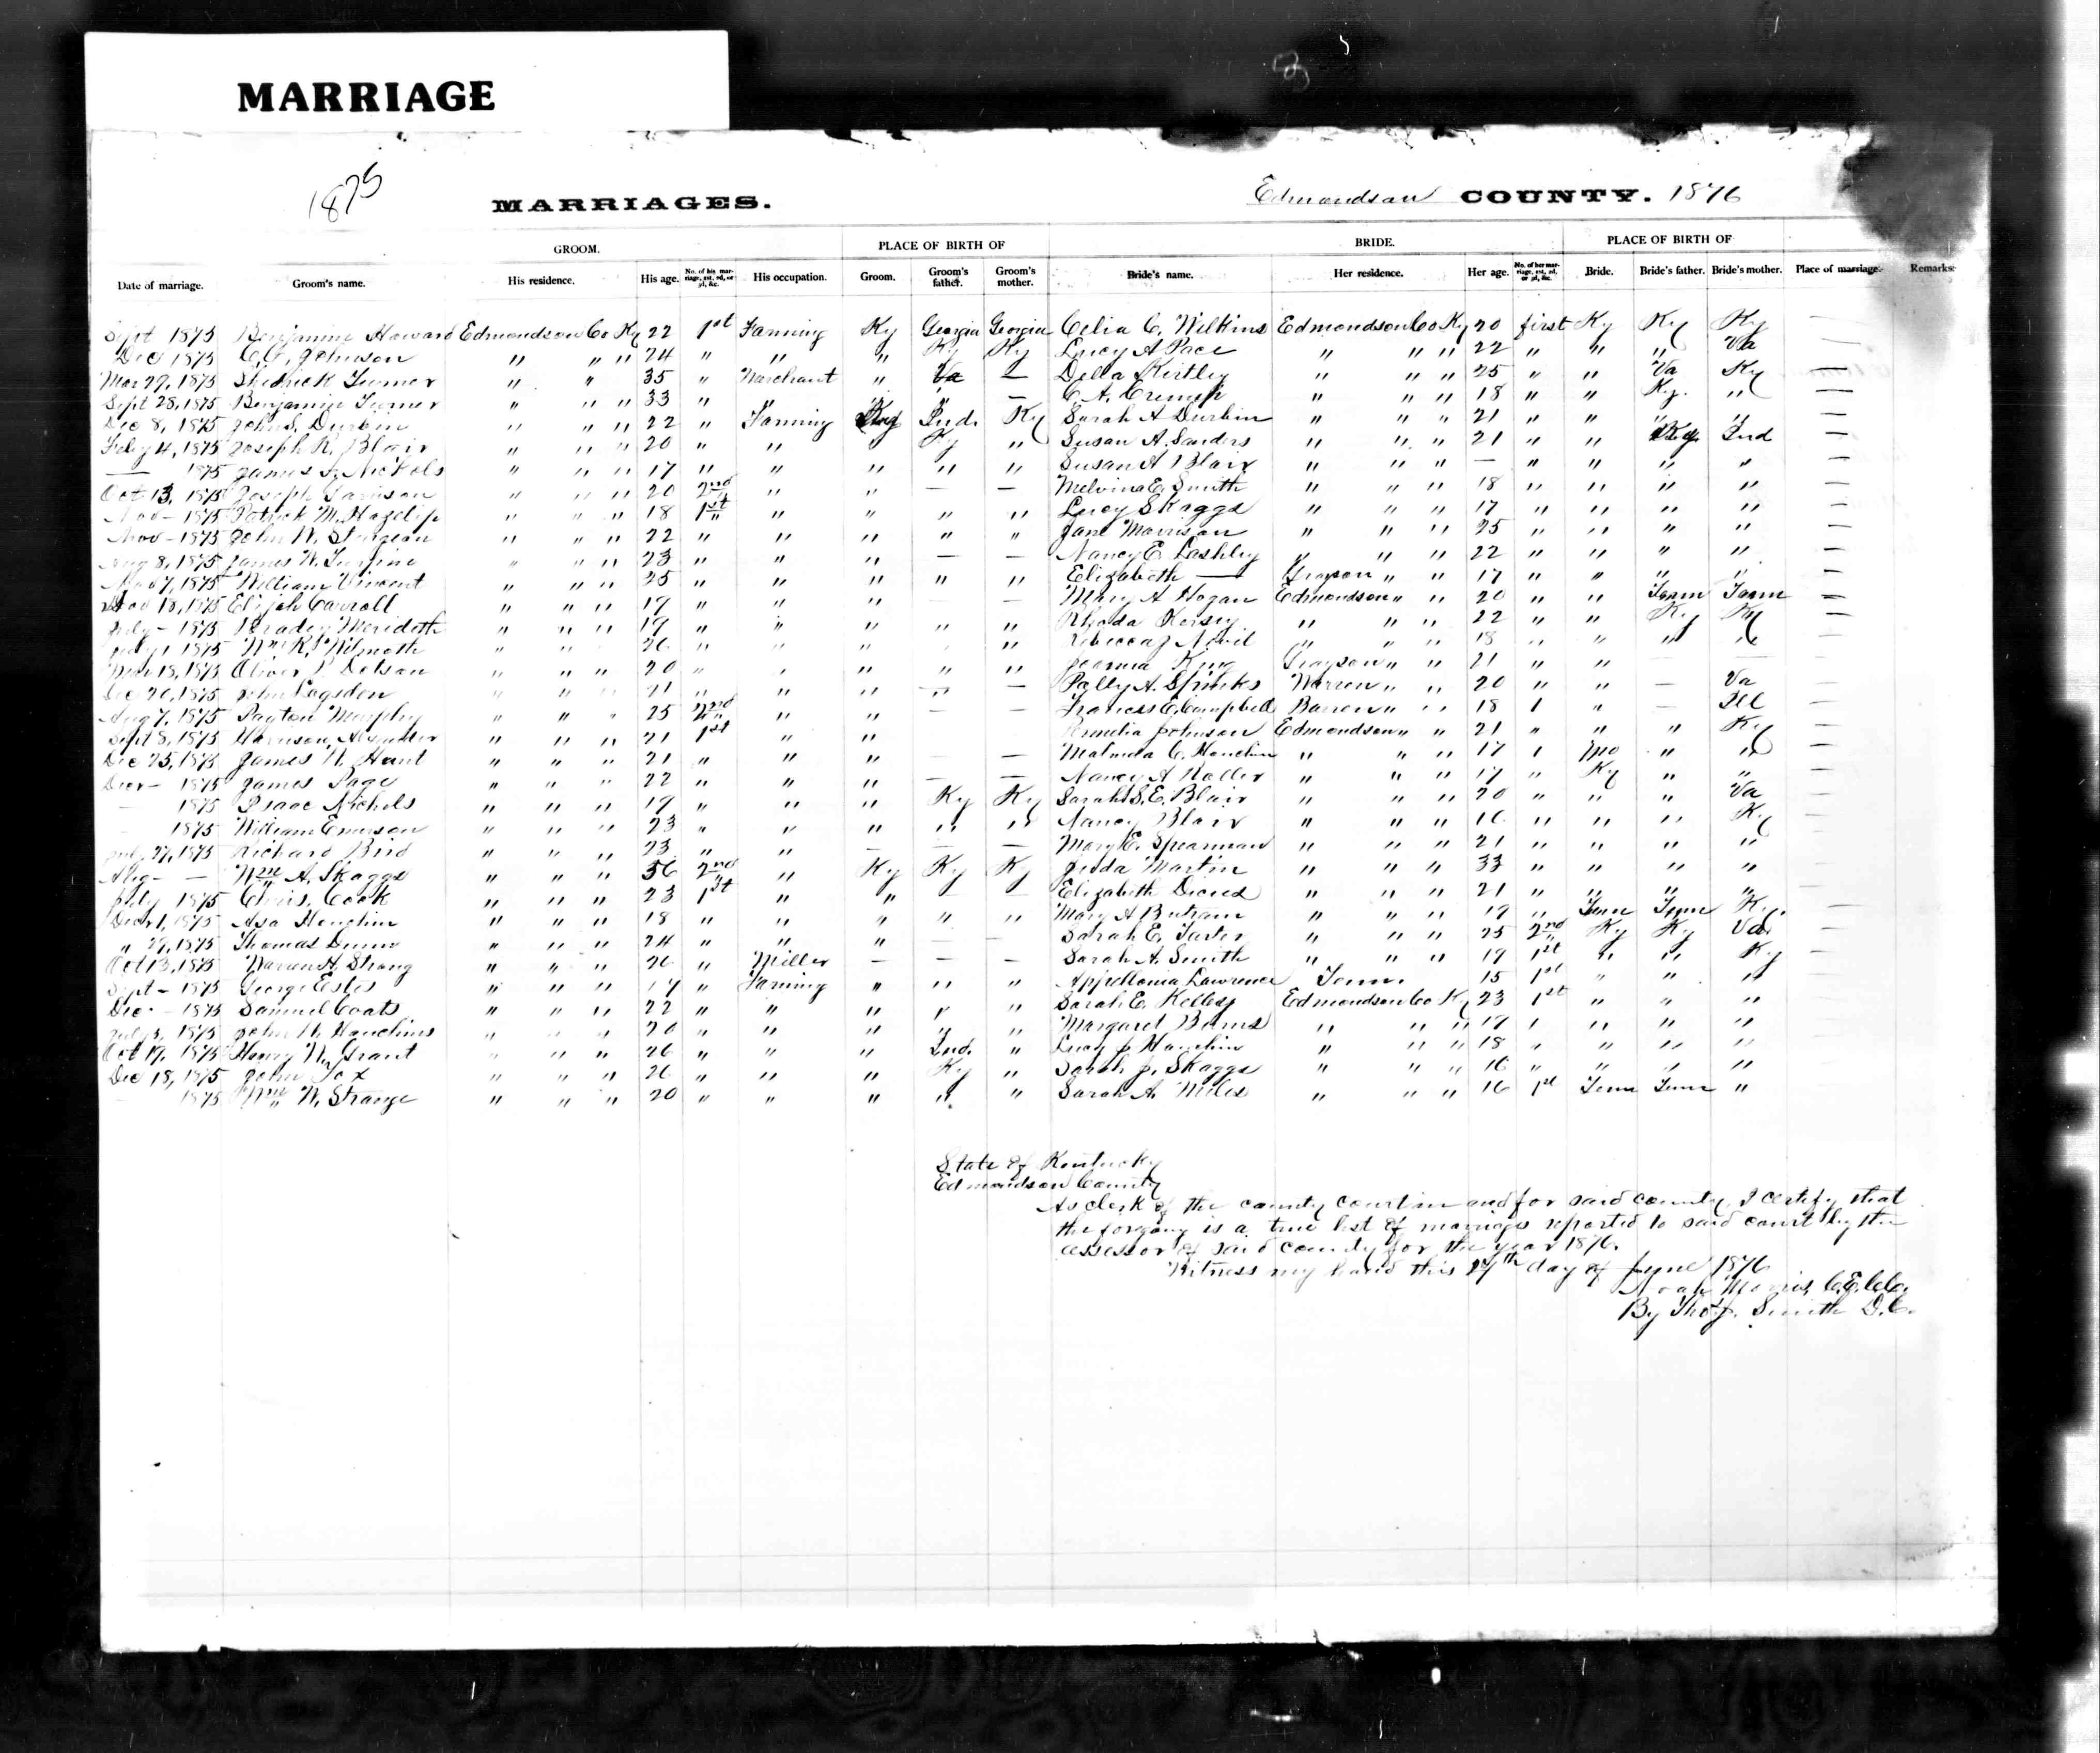 MARRIAGE
1875
MARRIAGES.
Edmondson COUNTY. 1876
GROOM. PLACE OF BIRTH OF BRIDE. PLACE OF BIRTH OF
Date of marriage. Groom's name. His residence. His age. No. of his marriage, 1st, 2d, or 3d, &c. His occupation. Groom. Groom's father. Groom's mother. Bride's name. Her residence. Her age. No. of her marriage, 1st, 2d, or 3d, &c. Bride. Bride's father. Bride's mother. Place of marriage. Remarks.
Sept 1875 Benjamine Howard Edmondson Co Ky 22 1st Farming Ky Georgia Georgia Celia C. Wilkins Edmondson Co Ky 20 first Ky Ky Ky —
Dec 1875 Johnson " " " 24 " " " Ky Ky Lucy A Pace " " " 22 " " " Va —
Mar 29, 1875 Shedrick Turner " " 35 " Marchant " Va — Della Kirtley " " " 25 " " Va Ky —
Sept 28, 1875 Benjamin Turner " " " 33 " " " " — C. A. " " " 18 " " Ky. " —
Dec 8, 1875 John S. Durbin " " " 22 " Farming Ky Ind. Ky Sarah A Durbin " " " 21 " " " " —
Feby 4, 1875 Joseph R. Blair " " " 20 " " " Ky " Susan A. Sanders " " " 21 " " Ky Ind —
— 1875 James Nichols " " " 17 " " " " " Susan A Blair " " " — " " " " —
Oct 13, 1875 Joseph " " " 20 2nd " " — — Melvina E. Smith " " " 18 " " " " —
Nov — 1875 Patrick M. Hazelip " " " 18 1st " " " " Lucy Skaggs " " " 17 " " " " —
Nov — 1875 John W. Sturgeon " " " 22 " " " " " Jane Morrison " " " 25 " " " " —
Aug 8, 1875 James W. " " " 23 " " " — — Nancy E. Lashley " " " 22 " " " " —
Nov 7, 1875 William Vincent " " " 25 " " " " " Elizabeth — Grayson " " 17 " " " " —
Nov 18, 1875 Elijah Carroll " " " 19 " " " — — Mary A Hogan Edmondson " " 20 " " Tenn Tenn —
July — 1875 Bradley Merideth " " " 19 " " " " " Rhoda Kersey " " " 22 " " Ky Ky —
1875 Wm K. Wilmoth " " " 26 " " " " " Rebecca J " " " 18 " " " " —
18, 1875 Oliver P. Dotson " " " 20 " " " " " King Grayson " " 21 " " — — —
Dec 26, 1875 John Logsden " " " 21 " " " " — Polly A. Spinks Warren " " 20 " " — Va —
Aug 7, 1875 Payton Murphy " " " 25 2nd " " — — Frances C. Campbell Barren " " 18 1 " — Ill —
Sept 8, 1875 Harrison " " " 21 1st " " Johnson Edmondson " " 21 " " " Ky —
Dec 25, 1875 James W. Hunt " " " 21 " " " — — Malinda C. Houchin " " " 17 1 Mo " " —
Decr — 1875 James Page " " " 22 " " " — — Nancy A " " " 17 " Ky " " —
— 1875 Isaac Nichols " " " 19 " " " Ky Ky Sarah S. E. Blair " " " 20 " " " Va —
1875 William Emerson " " " 23 " " " " " Nancy Blair " " " 16 " " " Ky —
July 27, 1875 Richard Bird " " " 23 " " — — — Mary E. Spearman " " " 21 " " " " —
Aug — — Wm A. Skaggs " " " 36 2nd " Ky Ky Ky Juda Martin " " " 33 " " " " —
July 1875 Chris. Cook " " " 23 1st " " " " Elizabeth " " " 21 " " " " —
Decr 1, 1875 Asa Houchin " " " 18 " " " " " Mary A Butram " " " 19 " Tenn Tenn Ky. —
" 29, 1875 Thomas Dunn " " " 24 " " " — — Sarah E. " " " 25 2nd Ky Ky Va. —
Oct 13, 1875 Warren H. Strong " " " 26 " Miller — — — Sarah A. Smith " " " 19 1st " " Ky —
Sept — 1875 George Estes " " " 19 " Farming " " " Appellonia Lawrence Tenn. 15 1st " " " —
Dec. — 1875 Samuel Coats " " " 22 " " " " " Sarah E. Kelley Edmondson Co Ky 23 1st " " " —
July 3, 1875 John W. Houchins " " " 20 " " " " " Margaret " " " 19 1 " " " —
Oct 19, 1875 Henry W. Grant " " " 26 " " " Ind. " Lucy J Houchin " " " 18 " " " " —
Dec 18, 1875 John Fox " " " 26 " " " Ky " Sarah J. Skaggs " " " 16 " " " " —
— 1875 Wm W. Strange " " " 20 " " " " " Sarah A. Miles " " " 16 1st Tenn Tenn " —
State of Kentucky
Edmondson County
As clerk of the county court in and for said county, I certify that
the forgoing is a true list of marriages reported to said court by the
assessor of said county for the year 1876.
Witness my hand this 17th day of June 1876
Noah Morris C.E.C.C.
By Thos J. Smith D.C.